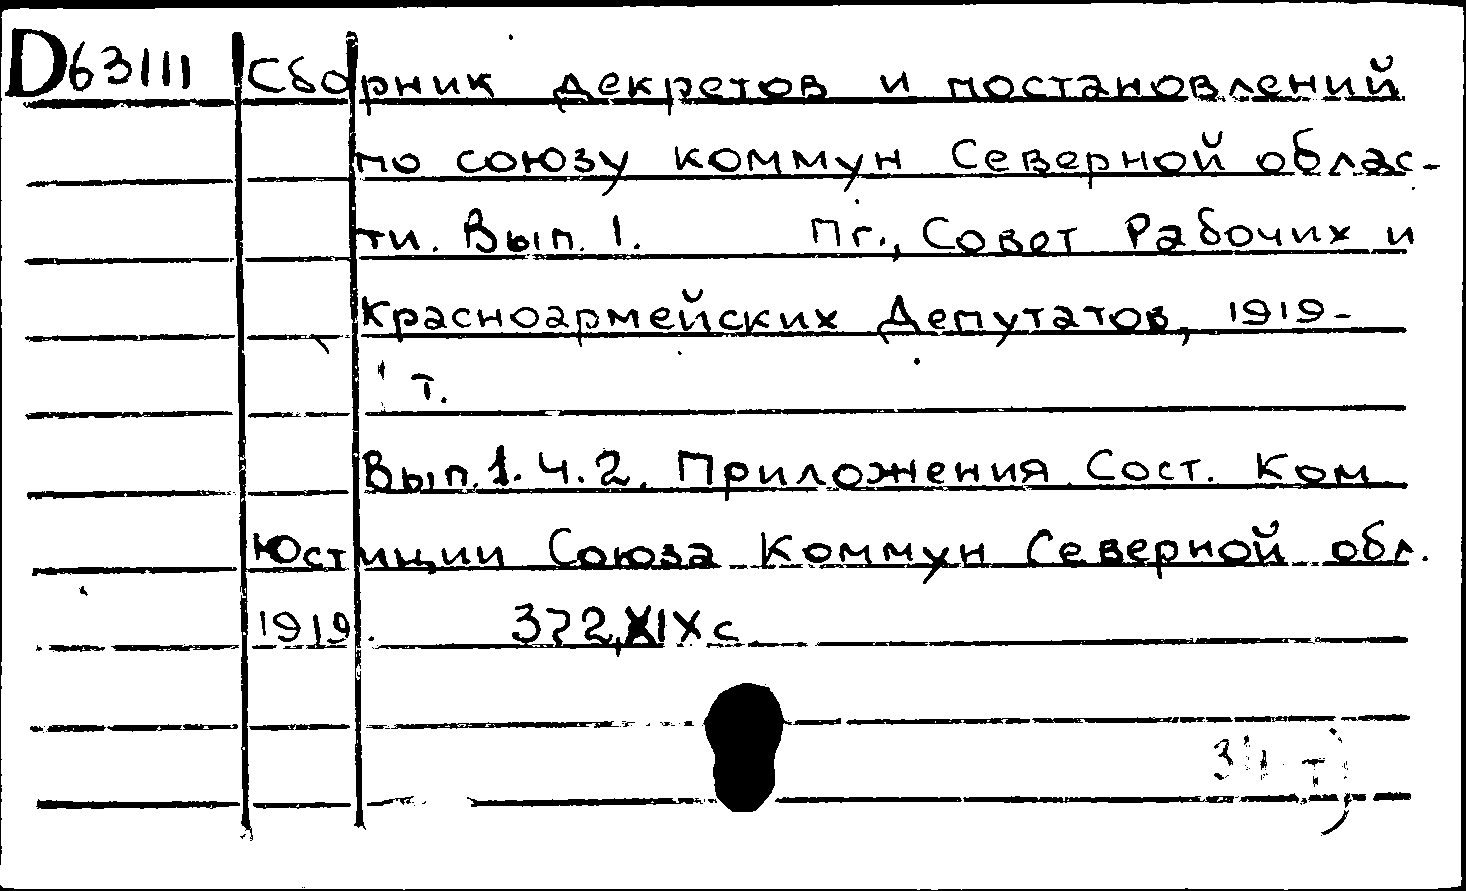 D63111 Сборник декретов и постановлений
по союзу коммун Северной облас-
ти. Вып. 1. Пг., Совет Рабочих и
Красноармейских Депутатов, 1919-
т.
Вып. 1. Ч. 2. Приложения. Сост. Ком
Юстиции Союза Коммун Северной обл.
1919. 372, XIX с.